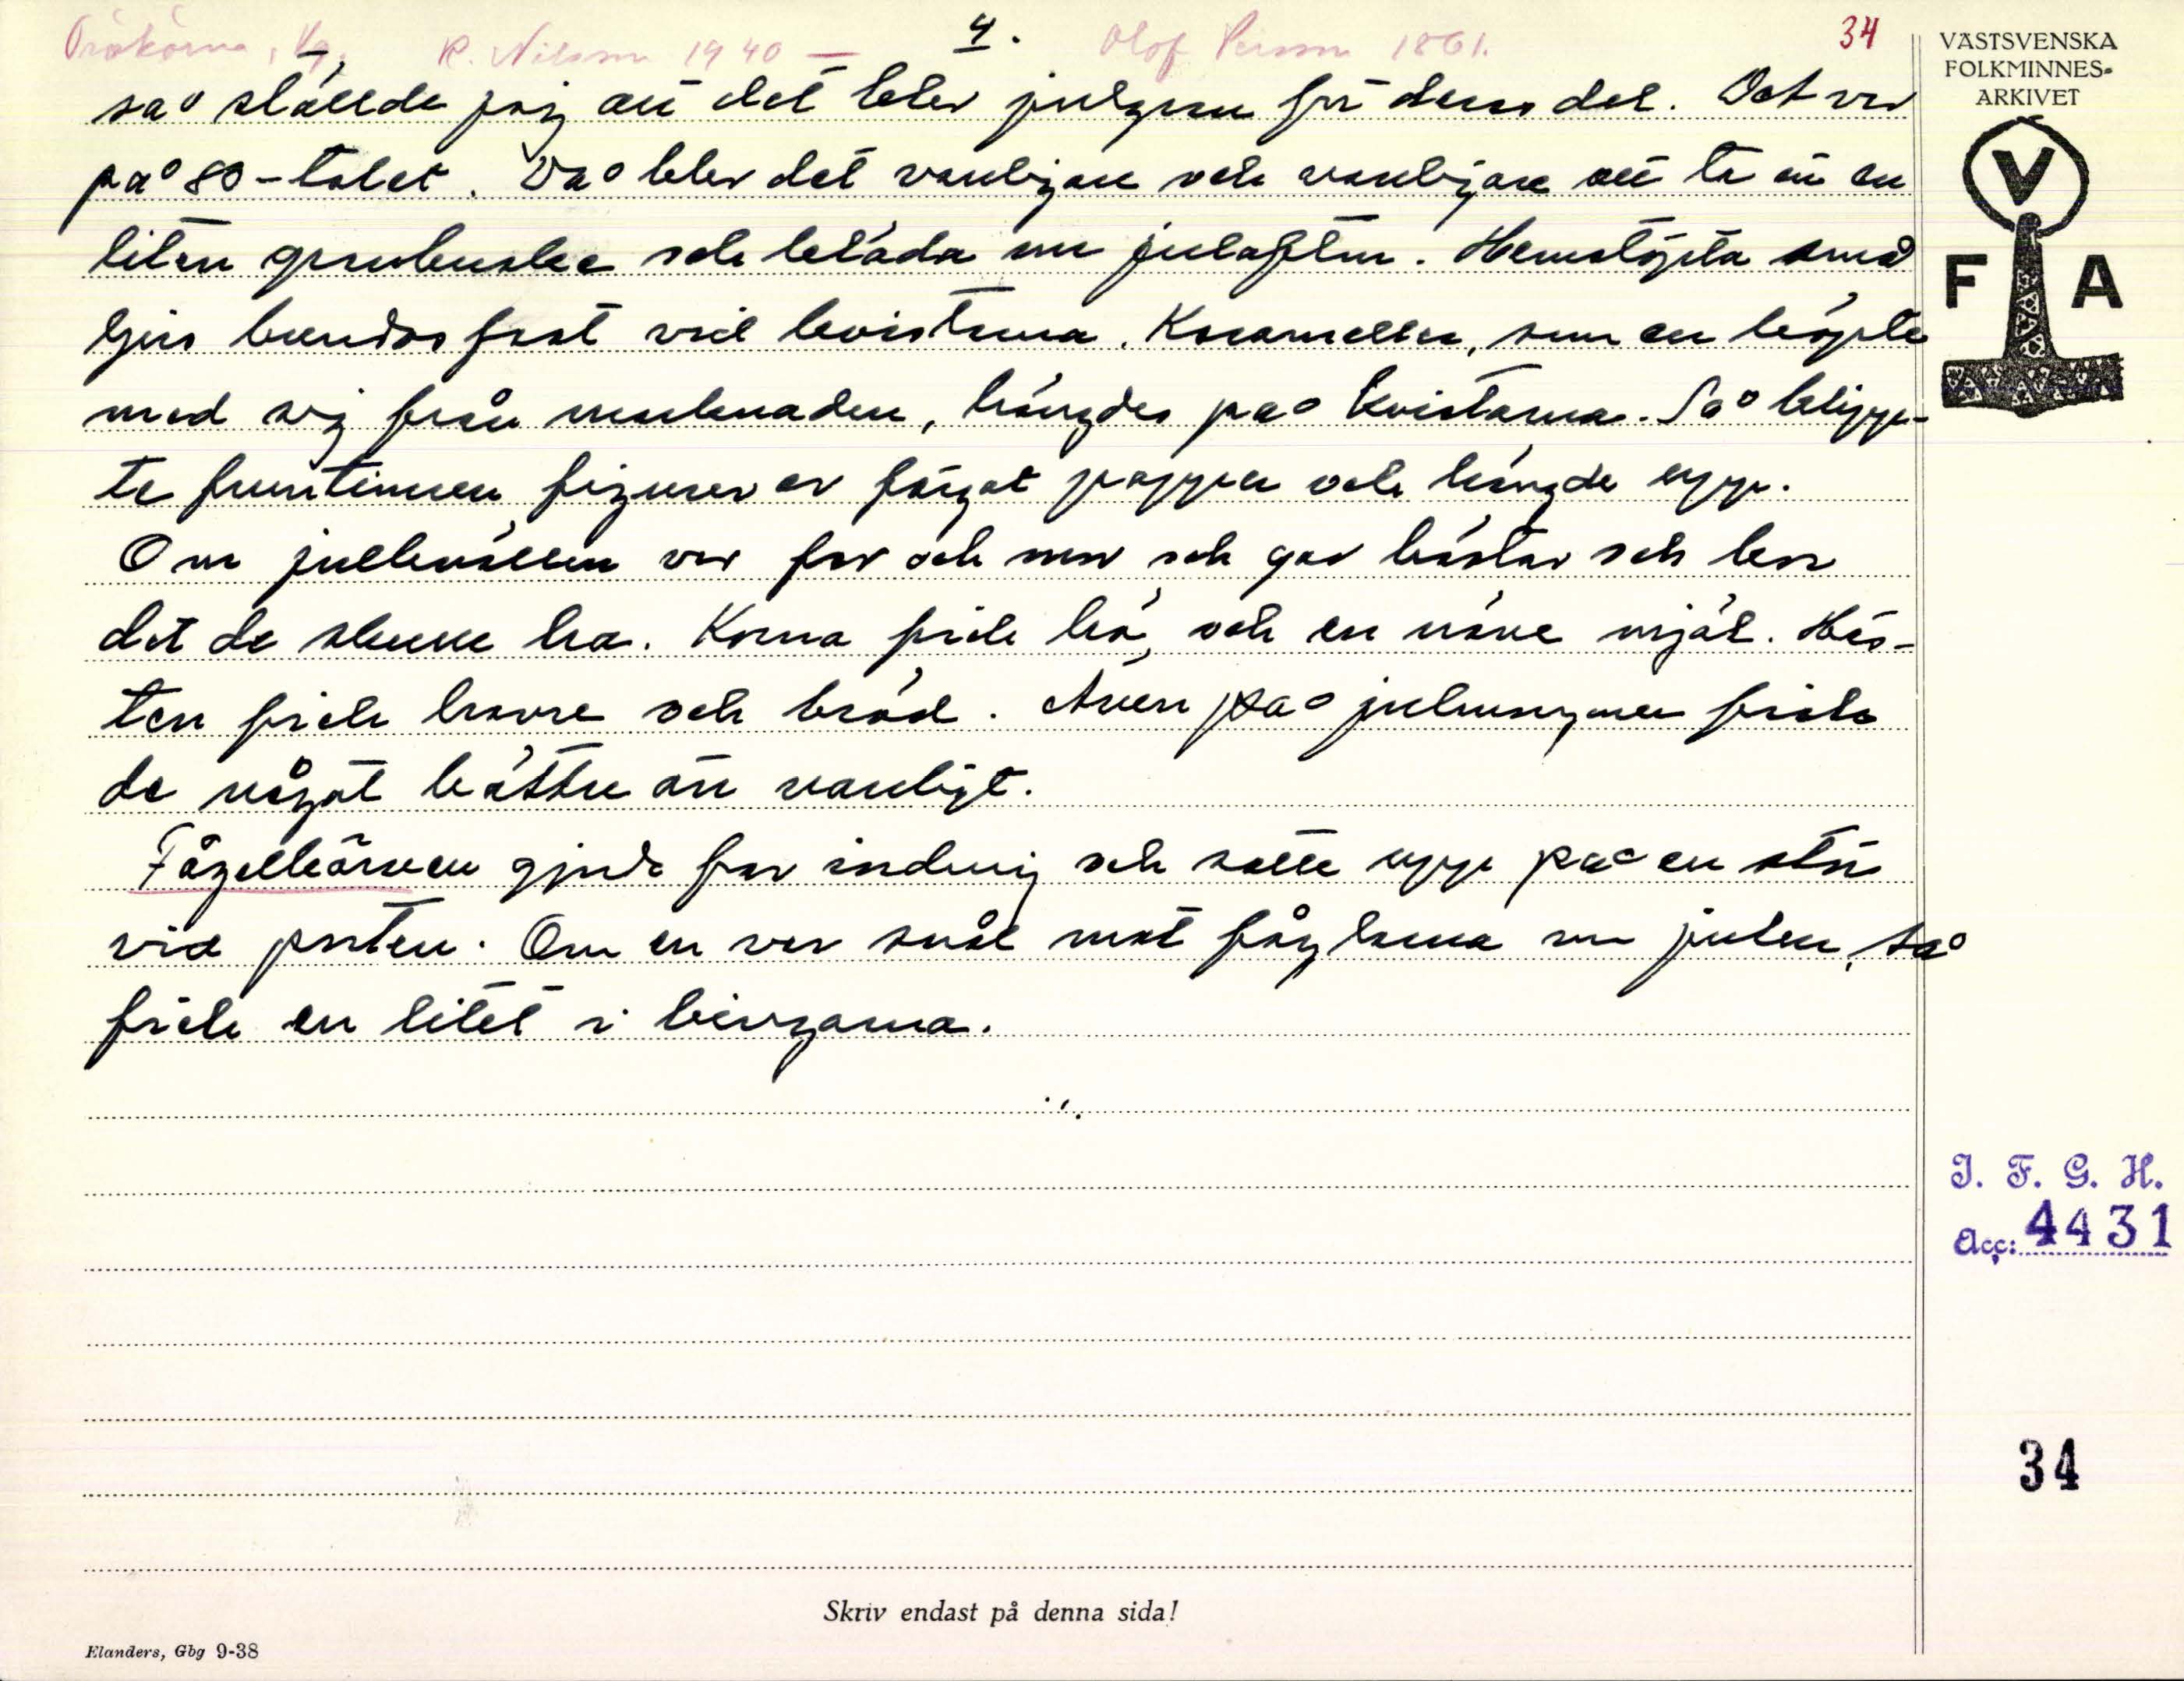 Öråkörna, Vg. R. Nilsson 1940 — 4. Olof Persson 1861. 34
så ställde jag att det blev julgran för dess del. Det var
på 80-talet. Då blev det vanligare och vanligare att ta in en
liten granbuske och kläda om julafton. Hemstöpta små
ljus bundos fast vid kvistarna. Karameller, som en köpte
med sig från marknaden, hängdes på kvistarna. Så klipp-
te fruntimren figurer av färgat papper och hängde upp.
Om julkvällen var far och mor och gav hästar och kor
det de skulle ha. Korna fick hö, och en näve mjöl. Häs-
ten fick havre och bröd. Även på julmorgonen fick
de något bättre än vanligt.
Fågelkärven gjorde far iordning och satte upp på en stör
vid porten. Om en var snål mot fåglarna om julen, så
fick en litet i bingarna.
VÄSTSVENSKA
FOLKMINNES-
ARKIVET
V
F A
I. F. G. H.
Acc: 4431
34
Skriv endast på denna sida!
Elanders, Gbg 9-38